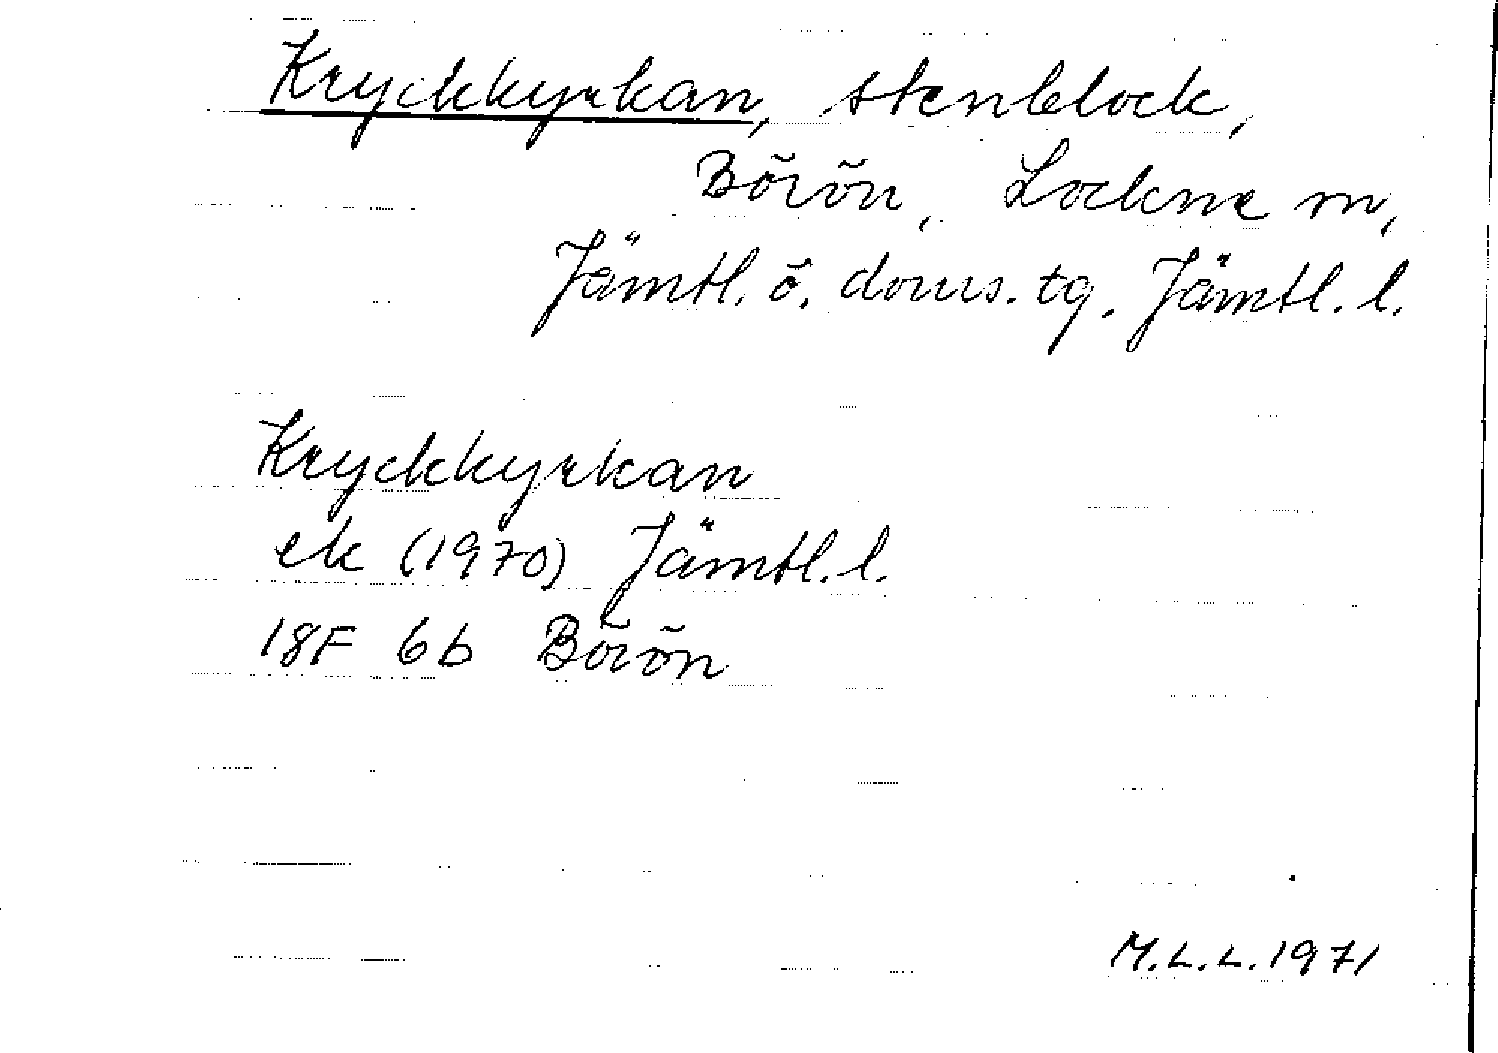 Kryckkyrkan, stenblock,
Börön, Lockne sn,
Jämtl. ö. doms. tg. Jämtl. l.
Kryckkyrkan
ek (1970) Jämtl. l.
18F 6b Börön
M.L.L. 1971